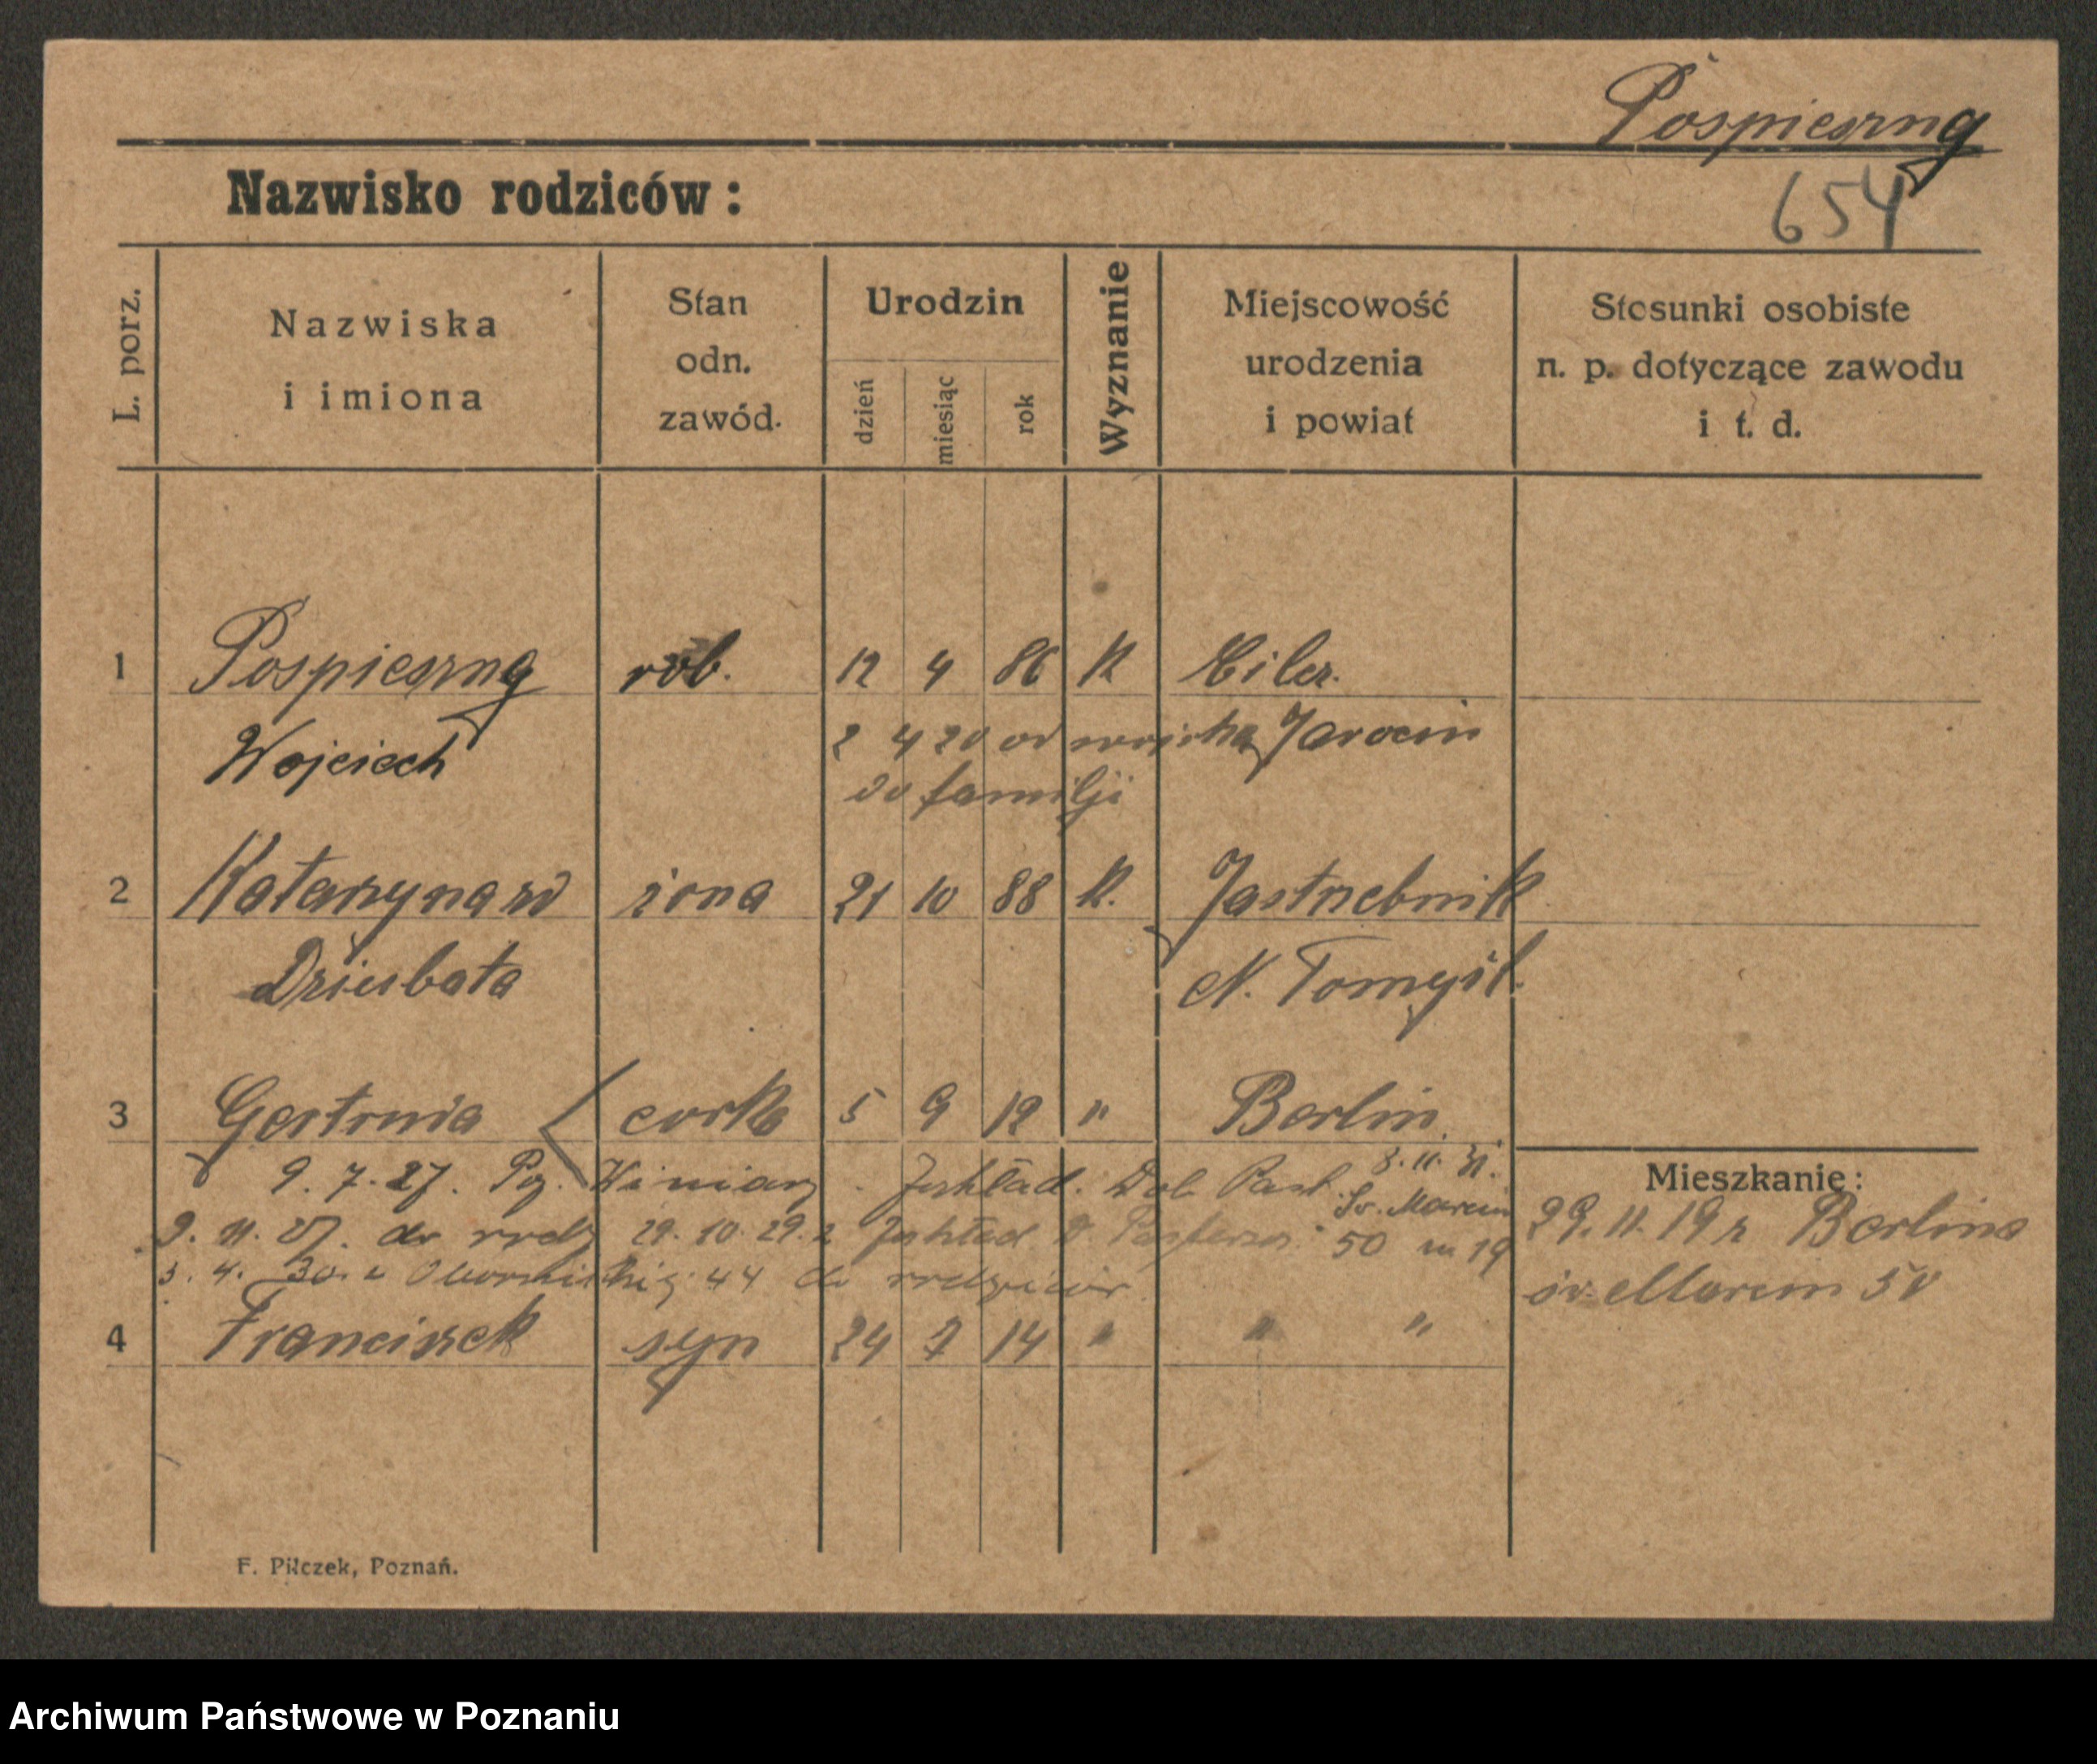 Pospieszny
654
Nazwisko rodziców:
L. porz.
Nazwiska
i imiona
Stan
odn.
zawód.
Urodzin
dzień
miesiąc
rok
Wyznanie
Miejscowość
urodzenia
i powiat
Stosunki osobiste
n. p. dotyczące zawodu
i t. d.
1 Pospieszny rob. 12 4 86 K Cilcz.
Wojciech 2 4 20 od wojska Jarocin
do familji
2 Katarzyna zd żona 21 10 88 K. Jastrzebnik
Dziubata N. Tomyśl.
3 Gertruda córka 5 9 12 " Berlin
9. 7. 27. Winiary 3. 11. 31.
Św. Marcin
9. 11. 27. do rodz 29. 10. 29. z 50 m 19
3. 4. 30. z 44 do rodziców
4 Franciszek syn 24 7 14 " " "
Mieszkanie:
29. 11. 19 z Berlina
św. Marcin 50
F. Pilczek, Poznań.
Archiwum Państwowe w Poznaniu